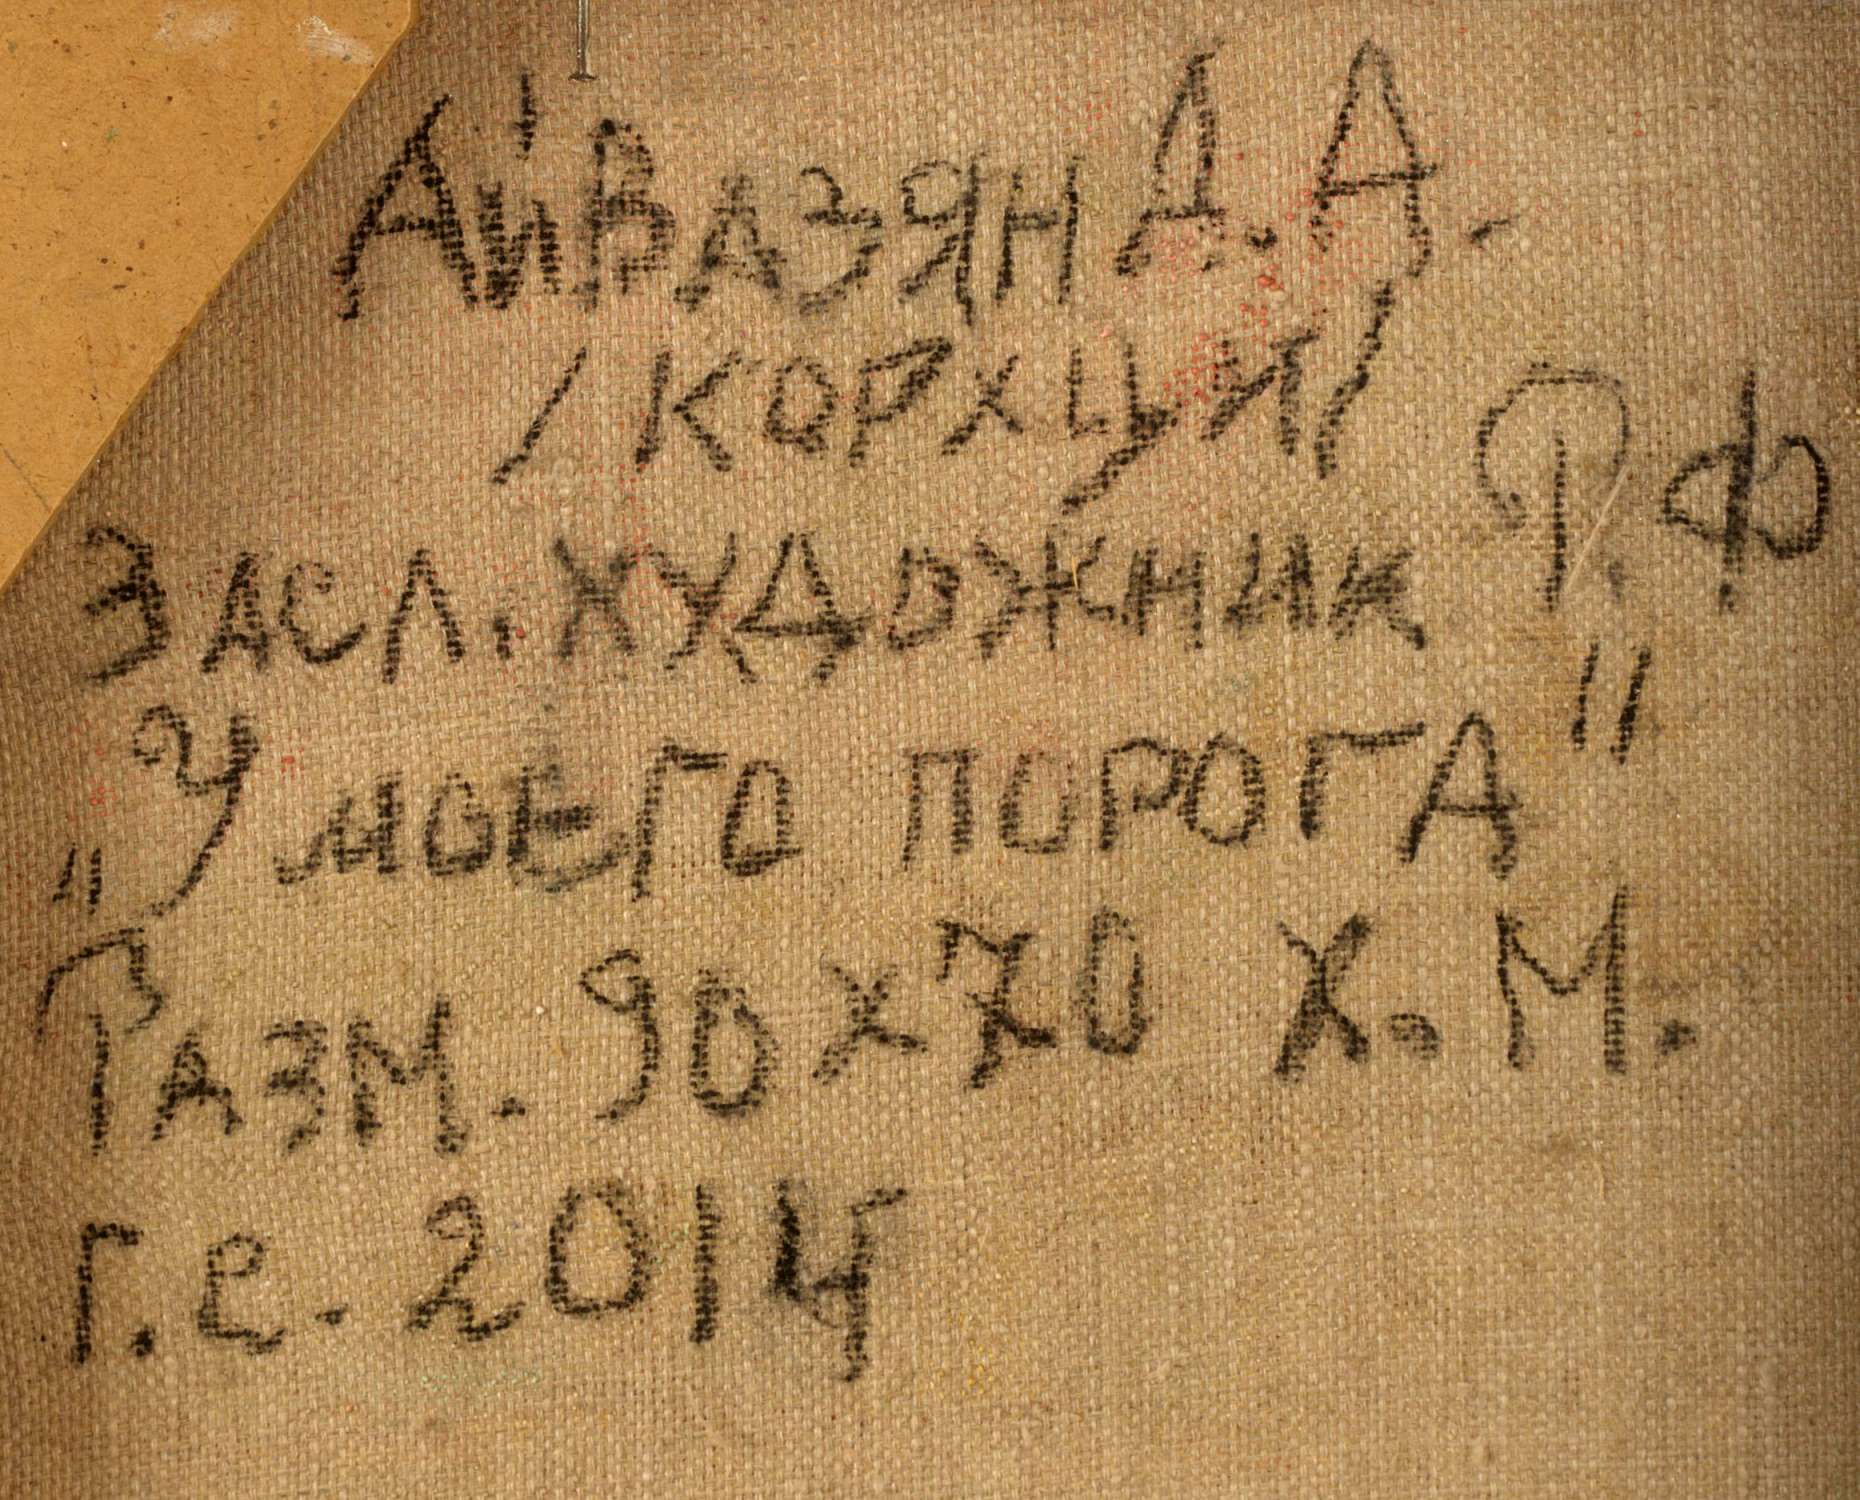 Айвазян Д. А.
/КОРХЦИ/
ЗАСЛ. ХУДОЖНИК Р.Ф
"У МОЕГО ПОРОГА"
РАЗМ. 90х70 Х.М.
Г.е. 2014